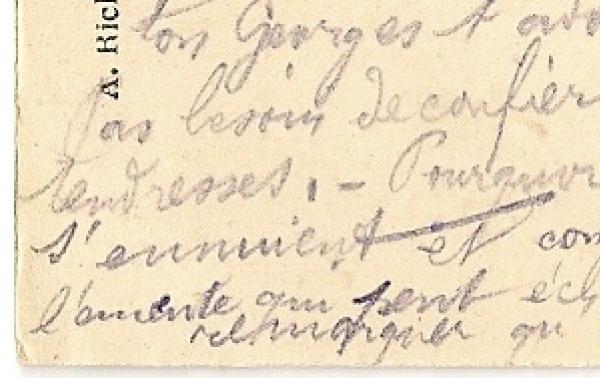 A. Rich
ton Georges t'ado
Pas besoin de confier
tendresses. – Pourquoi
s'ennuient et com
l'amente qui peut éch
remarquer qu